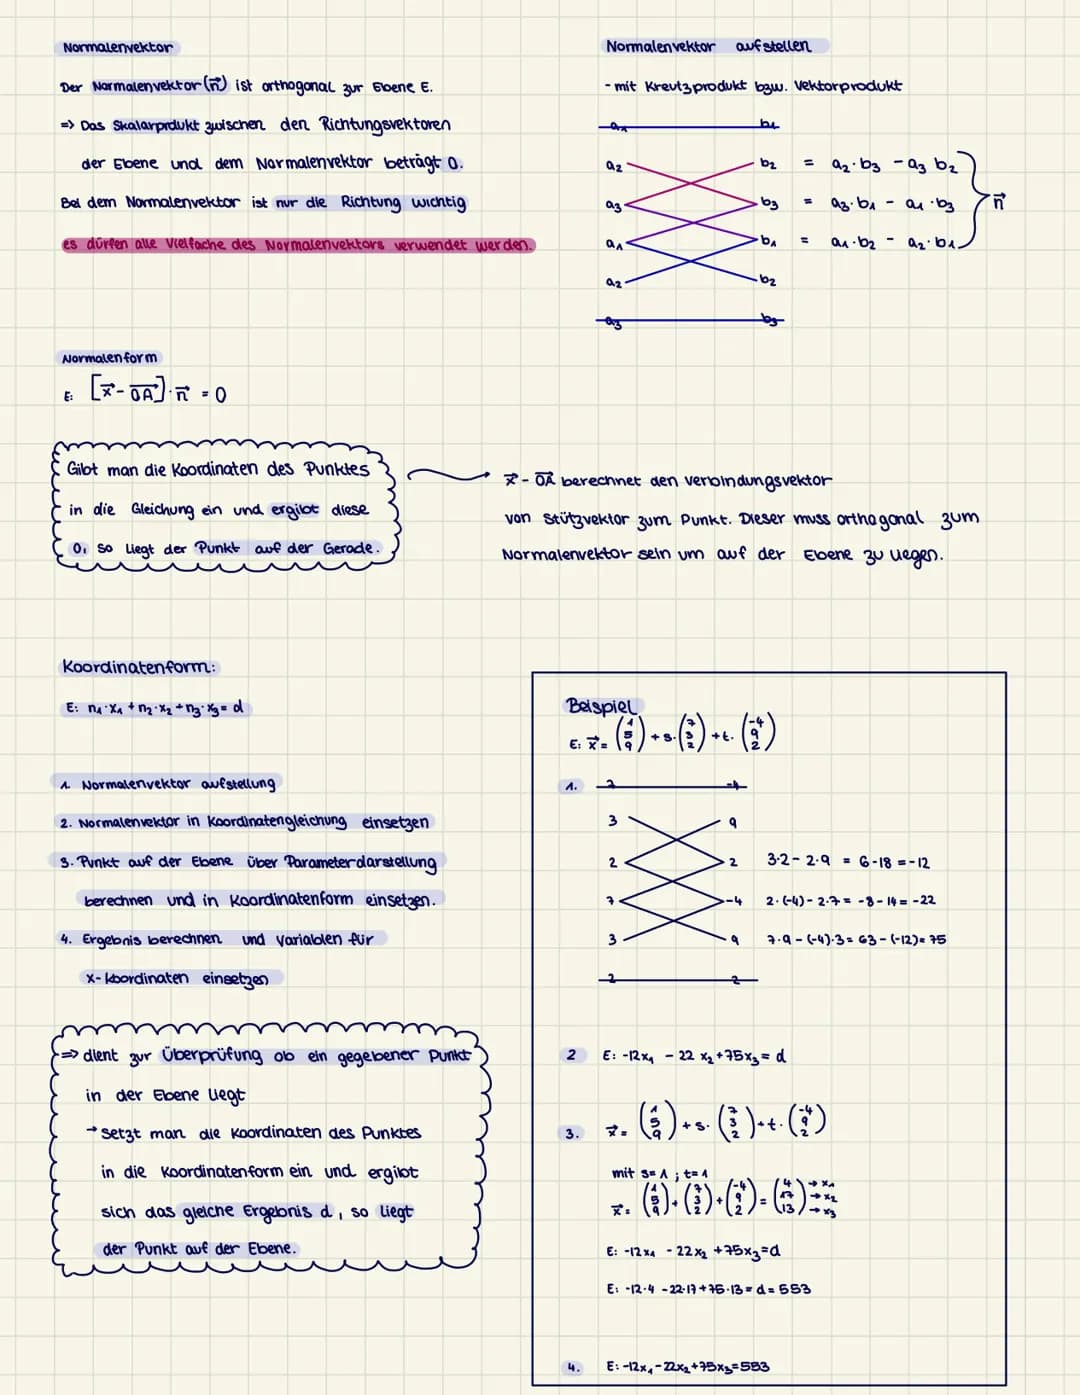 Normalenvektor
Der Normalenvektor (n⃗) ist orthogonal zur Ebene E.
=> Das Skalarprdukt zwischen den Richtungsvektoren
der Ebene und dem Normalenvektor beträgt 0.
Bei dem Normalenvektor ist nur die Richtung wichtig
es dürfen alle Vielfache des Normalenvektors verwendet werden.
Normalenvektor aufstellen
- mit Kreutzprodukt bzw. Vektorprodukt
a₁ b₁
a₂ b₂ = a₂·b₃ - a₃ b₂
a₃ b₃ = a₃·b₁ - a₁·b₃ } n⃗
a₁ b₁ = a₁·b₂ - a₂·b₁
a₂ b₂
a₃ b₃
Normalenform
E: [x⃗ - OA⃗]·n⃗ = 0
Gibt man die Koordinaten des Punktes
in die Gleichung ein und ergibt diese
0, so liegt der Punkt auf der Gerade.
x⃗ - OA⃗ berechnet den verbindungsvektor
von Stützvektor zum Punkt. Dieser muss orthogonal zum
Normalenvektor sein um auf der Ebene zu liegen.
Koordinatenform:
E: n₁·x₁ + n₂·x₂ + n₃·x₃ = d
1. Normalenvektor aufstellung
2. Normalenvektor in Koordinatengleichung einsetzen
3. Punkt auf der Ebene über Parameterdarstellung
berechnen und in Koordinatenform einsetzen.
4. Ergebnis berechnen und Variablen für
x-koordinaten einsetzen
=> dient zur Überprüfung ob ein gegebener Punkt
in der Ebene liegt
→ setzt man die Koordinaten des Punktes
in die Koordinatenform ein und ergibt
sich das gleiche Ergebnis d, so liegt
der Punkt auf der Ebene.
Beispiel
E: x⃗ = (1 5 9) + s·(7 3 2) + t·(-4 9 2)
1. 7 -4
3 9
2 2 3·2 - 2·9 = 6-18 = -12
7 -4 2·(-4) - 2·7 = -8-14 = -22
3 9 7·9 - (-4)·3 = 63-(-12) = 75
2 2
2 E: -12x₁ - 22x₂ + 75x₃ = d
3. x⃗ = (1 5 9) + s·(7 3 2) + t·(-4 9 2)
mit s=1 ; t=1
x⃗ = (1 5 9) + (7 3 2) + (-4 9 2) = (4 17 13) → x₁ → x₂ → x₃
E: -12x₁ - 22x₂ + 75x₃ = d
E: -12·4 - 22·17 + 75·13 = d = 553
4. E: -12x₁ - 22x₂ + 75x₃ = 553